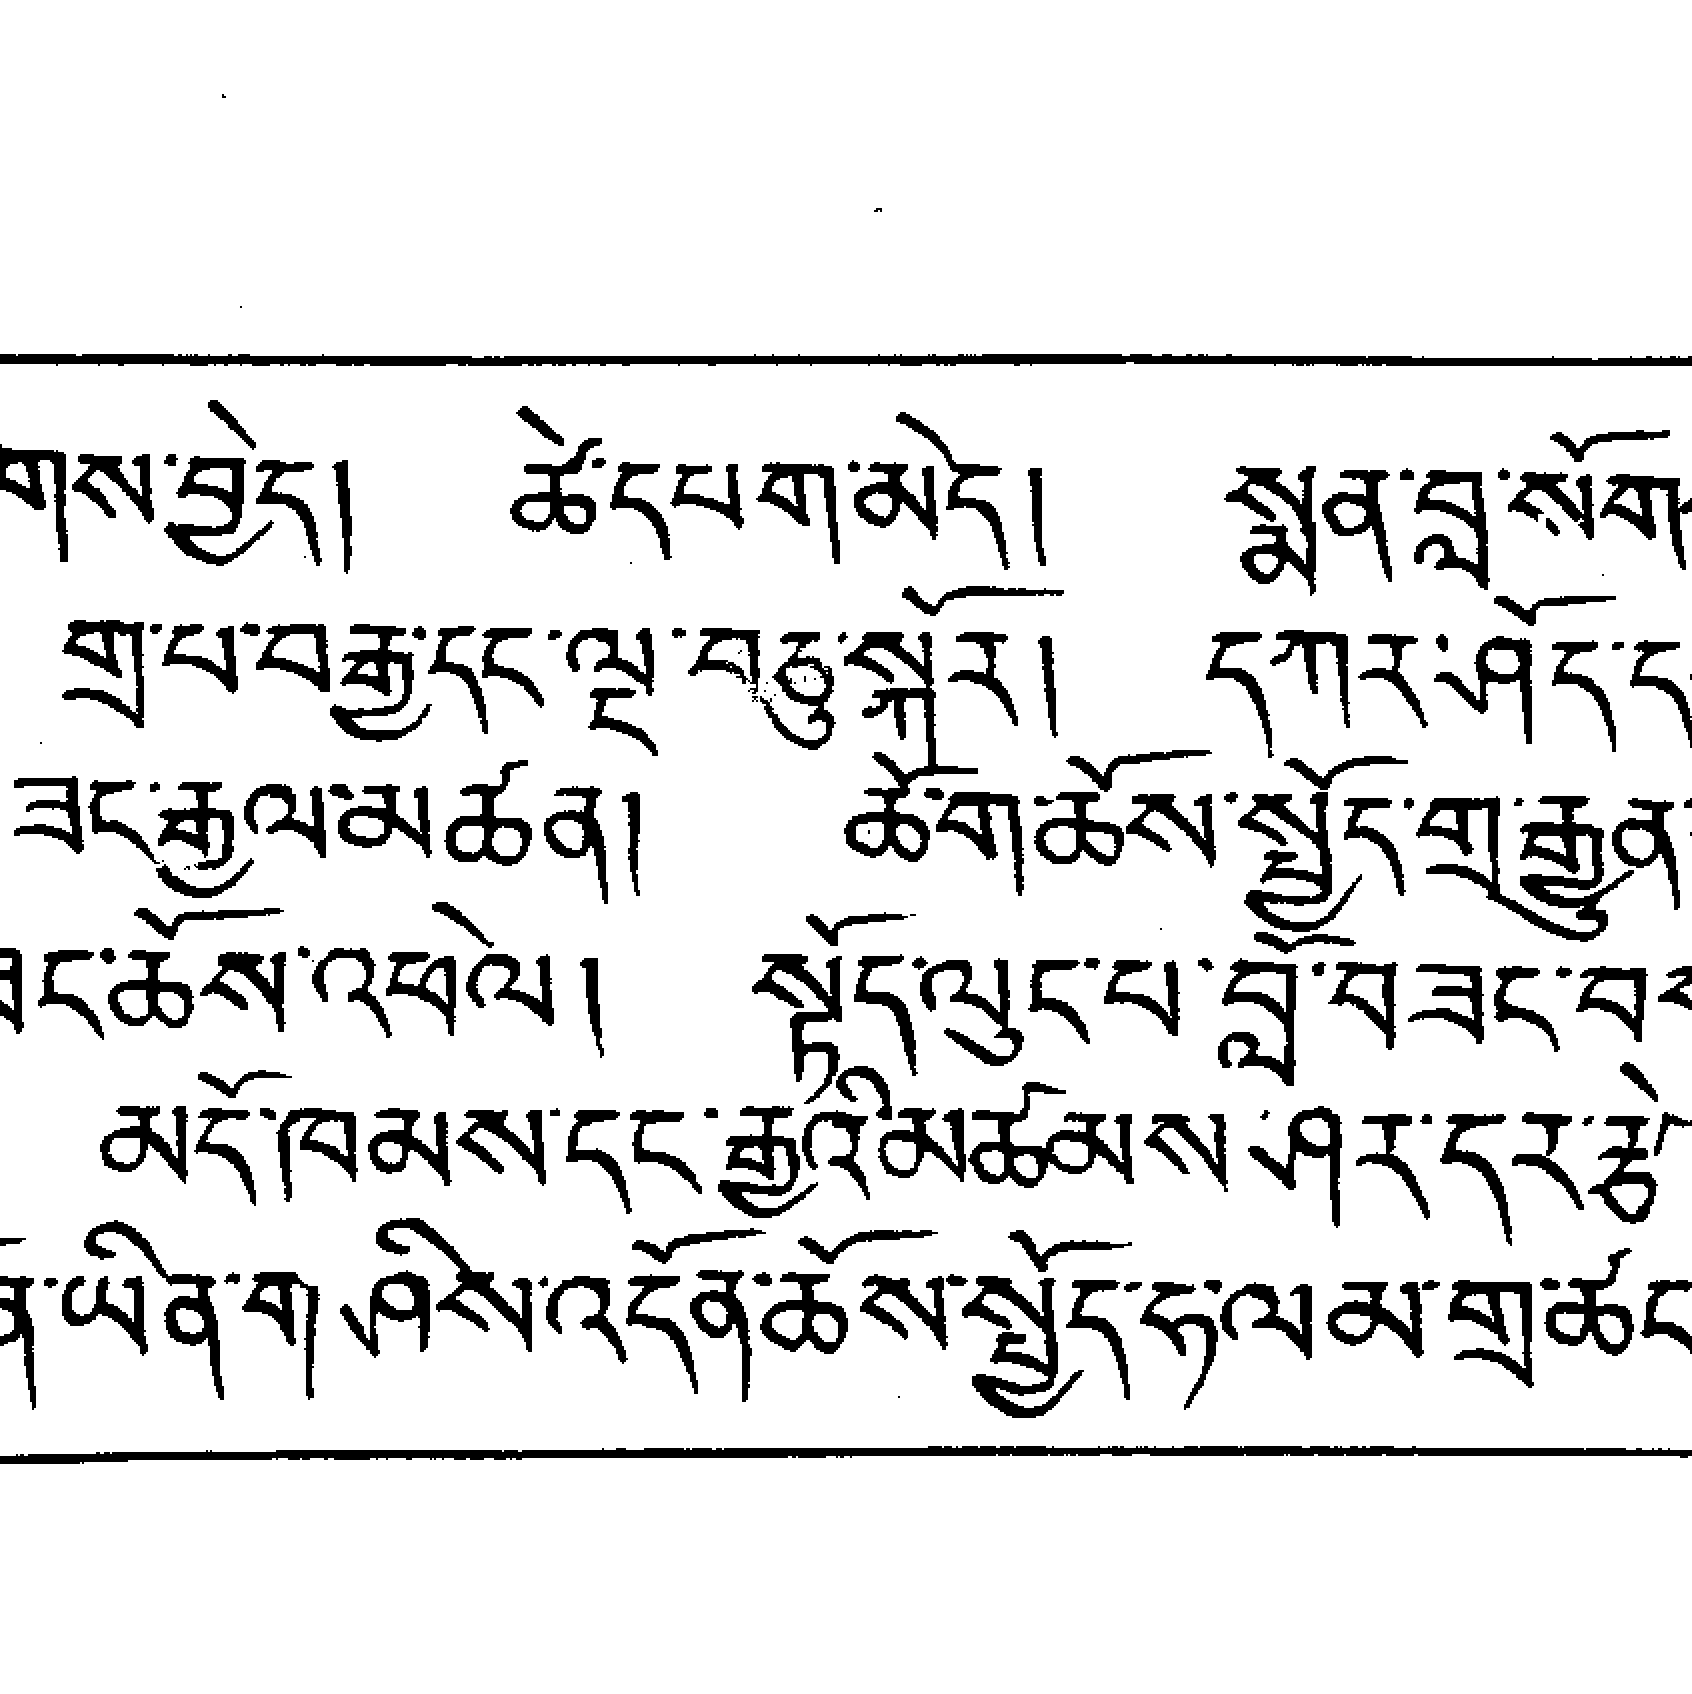 གས་བྱེད། ཚེ་དཔག་མེད། སྨན་བླ་སོག
གྲྭ་པ་བརྒྱ་དང་ལྔ་བཅུ་སྐོར། དཀར་ཤོད་ད
ཟང་རྒྱལ་མཚན། ཚོགས་ཆོས་སྤྱོད་གྲྭ་རྒྱུན
ང་ཆོས་འཕེལ། སྟོད་ལུང་པ་བློ་བཟང་བ
མདོ་ཁམས་དང་རྒྱའི་མཚམས་ཤར་དར་རྩེ
ན་ཡིན་ག ཤིས་འདོན་ཆོས་སྤྱོད་ཧ་ལམ་གྲྭ་ཚང